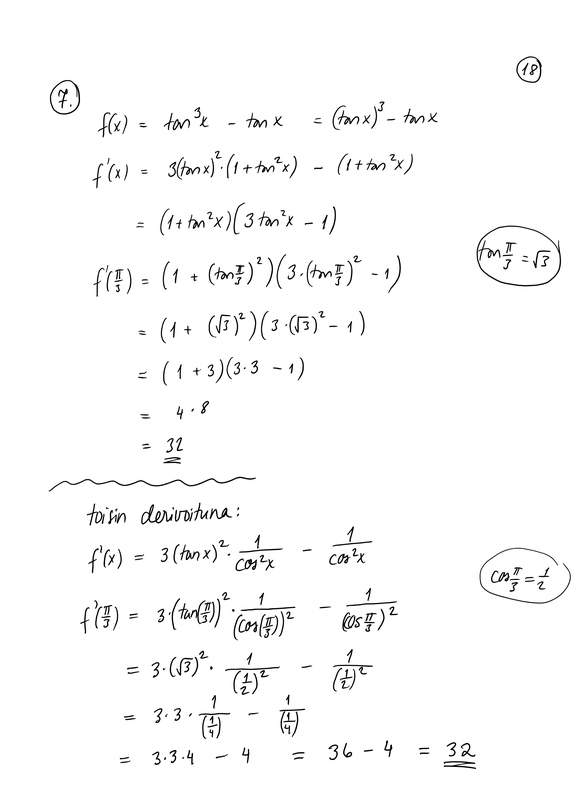 18
7.
f(x) = tan³x - tan x = (tan x)³ - tan x
f'(x) = 3(tan x)²·(1 + tan²x) - (1 + tan²x)
= (1 + tan²x)(3 tan²x - 1)
tan π/3 = √3
f'(π/3) = (1 + (tan π/3)²)(3·(tan π/3)² - 1)
= (1 + (√3)²)(3·(√3)² - 1)
= (1 + 3)(3·3 - 1)
= 4·8
= 32
toisin derivoituna:
f'(x) = 3(tan x)²· 1/cos²x - 1/cos²x
cos π/3 = 1/2
f'(π/3) = 3·(tan(π/3))²· 1/(cos(π/3))² - 1/(cos π/3)²
= 3·(√3)²· 1/(1/2)² - 1/(1/2)²
= 3·3· 1/(1/4) - 1/(1/4)
= 3·3·4 - 4 = 36 - 4 = 32